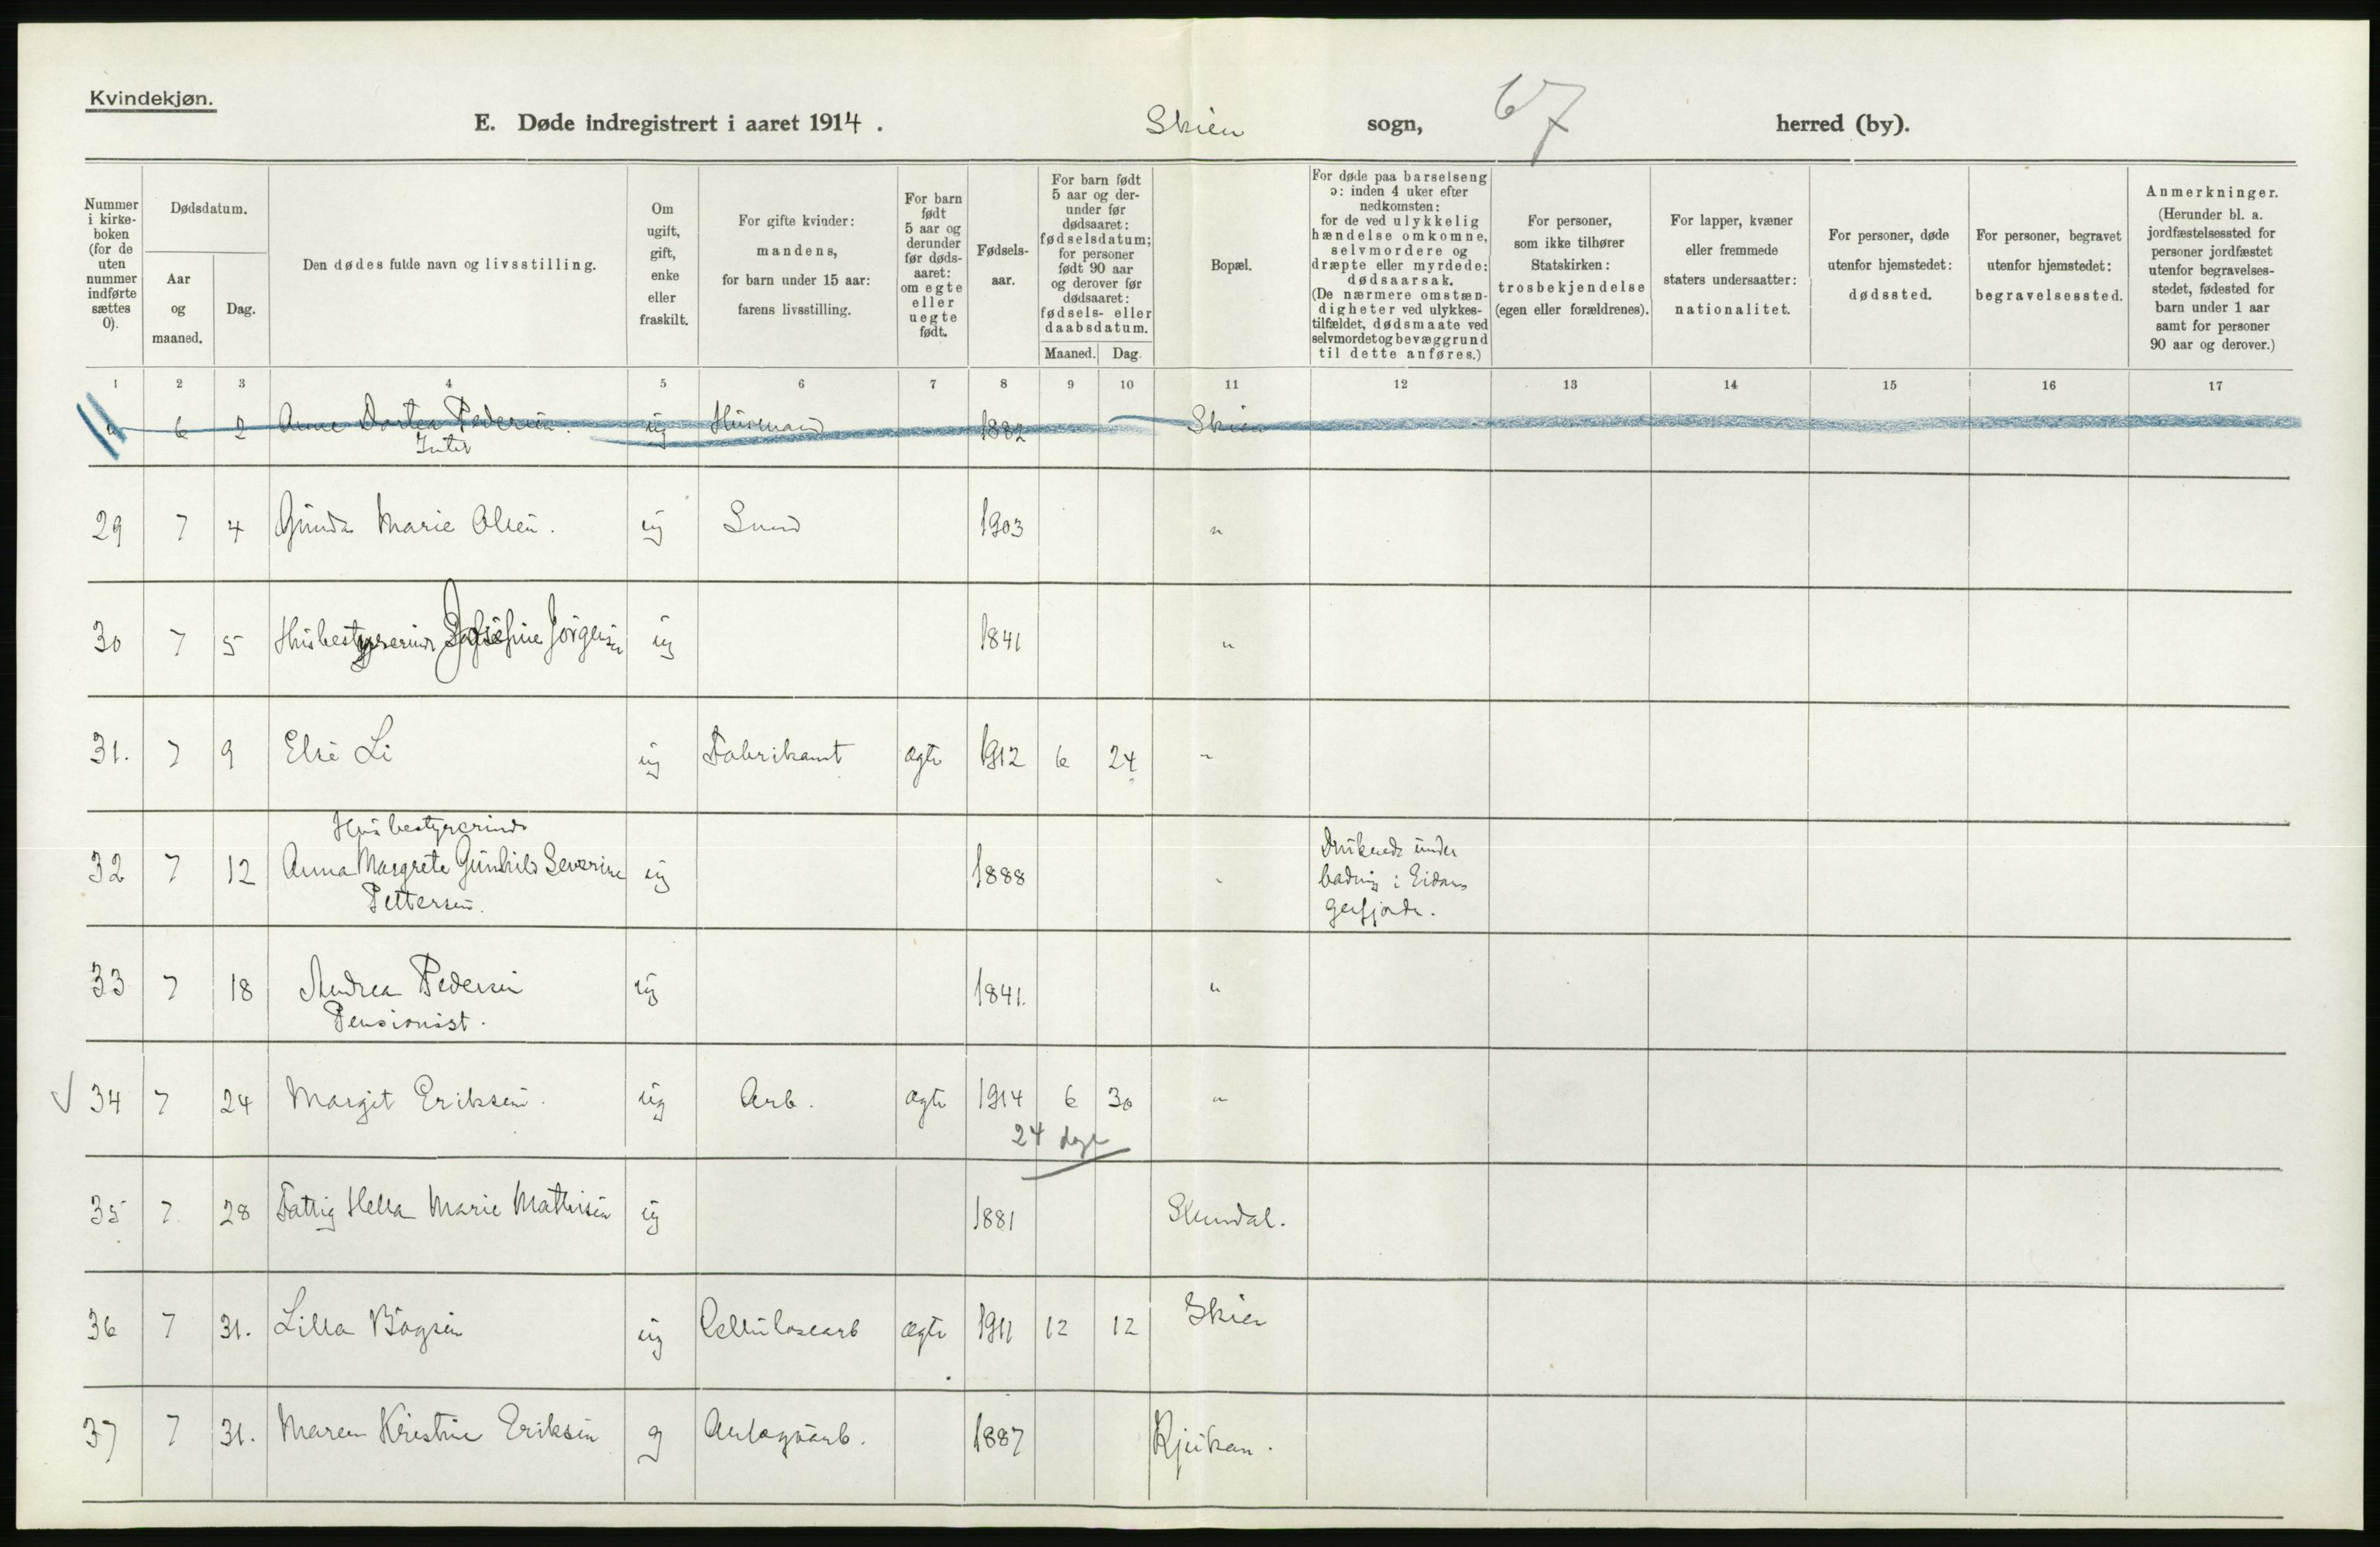 Kvindekjøn.
E. Døde indregistrert i aaret 1914. Skien sogn, 67 herred (by).
Nummer i kirke-boken (for de uten nummer indførte sættes 0).
Dødsdatum.
Aar og maaned.
Dag.
Den dødes fulde navn og livsstilling.
Om ugift, gift, enke eller fraskilt.
For gifte kvinder: mandens, for barn under 15 aar: farens livsstilling.
For barn født 5 aar og derunder før døds-aaret: om egte eller uegte født.
Fødsels-aar.
For barn født 5 aar og der-under før dødsaaret: fødselsdatum; for personer født 90 aar og derover før dødsaaret: fødsels- eller daabsdatum.
Maaned. Dag.
Bopæl.
For døde paa barselseng ɔ: inden 4 uker efter nedkomsten: for de ved ulykkelig hændelse omkomne, selvmordere og dræpte eller myrdede: dødsaarsak. (De nærmere omstæn-digheter ved ulykkes-tilfældet, dødsmaate ved selvmordet og bevæggrund til dette anføres.)
For personer, som ikke tilhører Statskirken: trosbekjendelse (egen eller forældrenes).
For lapper, kvæner eller fremmede staters undersaatter: nationalitet.
For personer, døde utenfor hjemstedet: dødssted.
For personer, begravet utenfor hjemstedet: begravelsessted.
Anmerkninger. (Herunder bl. a. jordfæstelsessted for personer jordfæstet utenfor begravelses-stedet, fødested for barn under 1 aar samt for personer 90 aar og derover.)
1 2 3 4 5 6 7 8 9 10 11 12 13 14 15 16 17
6 2 Anne Dortea Pedersen. ug Husmand 1882 Skien
29 7 4 Gunda Marie Olsen. ug 1903 "
30 7 5 Husbestyrerinde Josefine Jörgensen ug 1841 "
31. 7 9 Else Li ug Fabrikant ægte 1912 6 24 "
Husbestyrerinde
32 7 12 Anna Margrete Gunhild Severine ug 1888 " Druknede under
Pettersen. badning i Eidan-
gerfjorden.
33 7 18 Andrea Pedersen ug 1841. "
Pensionist.
34 7 24 Margit Eriksen. ug Arb. ægte 1914 6 30 "
24 dage
35 7 28 Fattig Hella Marie Mathisen ug 1881
36 7 31. Lilla Bögsen ug Cellulosearb ægte 1911 12 12 Skien
37 7 31. Maren Kristine Eriksen g Anlægsarb. 1887 Rjukan.